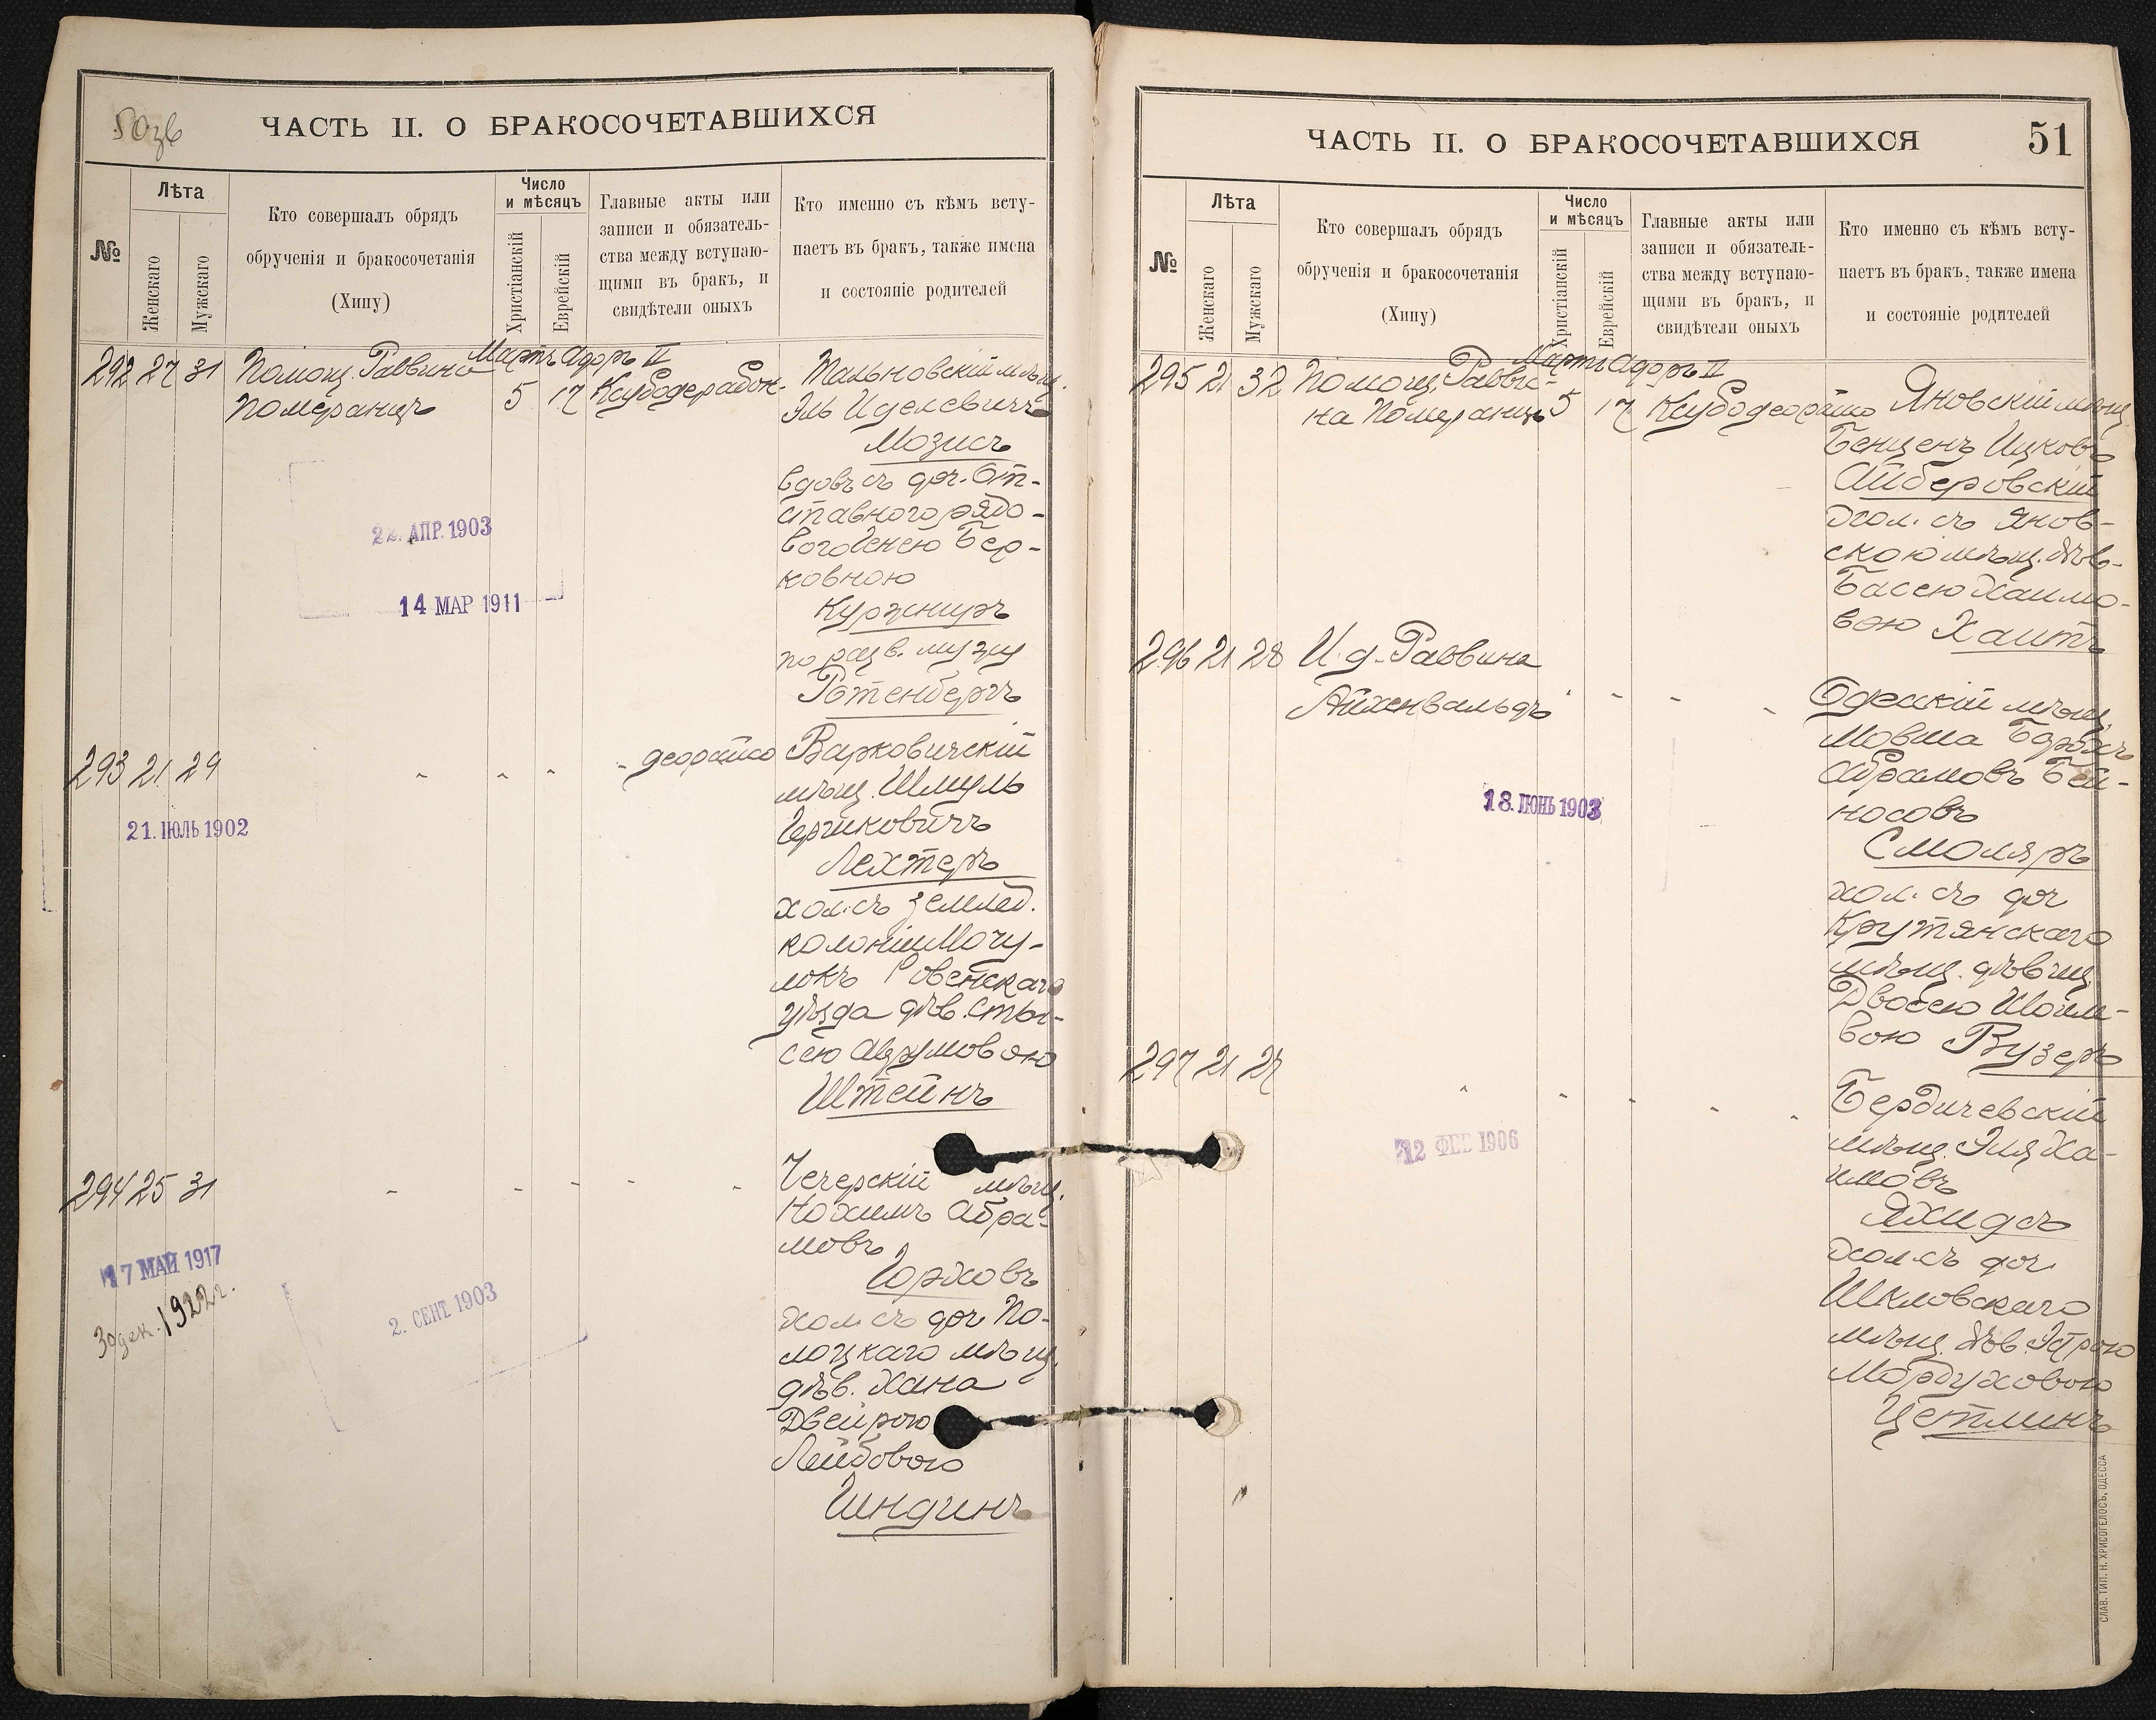 50 зв
ЧАСТЬ II. О БРАКОСОЧЕТАВШИХСЯ
№
Лѣта
Женскаго
Мужскаго
Кто совершалъ обрядъ
обрученія и бракосочетанія
(Хипу)
Число
и мѣсяцъ
Христіанскій
Еврейскій
Главные акты или
записи и обязатель-
ства между вступаю-
щими въ бракъ, и
свидѣтели оныхъ
Кто именно съ кѣмъ всту-
паетъ въ бракъ, также имена
и состояніе родителей
Мартъ Адаръ II
292 27 31 Помощ. Раввина
Померанцъ
5 17
Тальновскій мѣщ.
Эль Иделевичъ
Мозисъ
вдовъ съ доч. От-
ставного рядо-
вого Бер-
ковною
Куржниръ
по разв. мужу
Ротенбергъ
22. АПР. 1903
14 МАР 1911
293 21 29
Варковичскій
мѣщ. Шмуль
Гершковичъ
Лехтеръ
хол. съ землед.
колоніи Мочу-
локъ Ровенскаго
уѣзда дѣв. Сты-
сею Аврумовою
Штейнъ
21. ІЮЛЬ 1902
294 25 31
Чечерскій мѣщ.
Нохимъ Абра-
мовъ
Горховъ
хол. съ доч. По-
лоцкаго мѣщ.
дѣв. Хана
Двейрою
Лейбовою
Гиндинъ
17 МАЙ 1917
30 дек. 1922 г.
2. СЕНТ. 1903
ЧАСТЬ II. О БРАКОСОЧЕТАВШИХСЯ
51
№
Лѣта
Женскаго
Мужскаго
Кто совершалъ обрядъ
обрученія и бракосочетанія
(Хипу)
Число
и мѣсяцъ
Христіанскій
Еврейскій
Главные акты или
записи и обязатель-
ства между вступаю-
щими въ бракъ, и
свидѣтели оныхъ
Кто именно съ кѣмъ всту-
паетъ въ бракъ, также имена
и состояніе родителей
Мартъ Адаръ II
295 21 32 Помощ. Равви-
на Померанцъ
5 17
Яновскій мѣщ.
Бенценъ Ицковъ
Айберовскій
хол. съ Янов-
скою мѣщ. дѣв.
Басею Хаимо-
вою Хаитъ
296 21 28 И. д. Раввина
Айхенвальдъ
Одесскій мѣщ.
Мовша Борухъ
Абрамовъ Бей-
носовъ
Смоляръ
хол. съ доч
Крутянскаго
мѣщ. дѣвицею
Двосею Шоилі-
вою Вузеръ
18. ІЮНЬ 1903
297 21 27
Бердичевскій
мѣщ. Эля Ха-
имовъ
Яхидсъ
хол. съ доч.
Шкловскаго
мѣщ. дѣв. Эстрою
Мордуховою
Цетлинъ
12 ФЕВ 1906
СЛАВ. ТИП. Н. ХРИСОГЕЛОСЪ, ОДЕССА